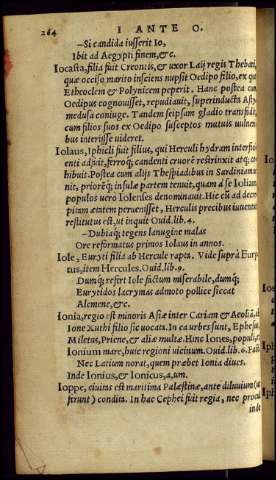 264 I ANTE O.
—Si candida iusserit Io,
Ibit ad Aegypti finem, &c.
Iocasta, filia fuit Creontis, & uxor Laij regis Thebani,
quæ occiso marito insciens nupsit Oedipo filio, ex quo
Etheoclem & Polynicem peperit. Hanc postea cum
Oedipus cognouisset, repudiauit, superinducta Asty
medusa coniuge. Tandem seipsam gladio transfixit,
cum filios suos ex Oedipo susceptos mutuis uulneri
bus interisse uideret.
Iolaus, Iphicli fuit filius, qui Herculi hydram interfici
enti adfuit, ferroq; candenti cruorē restrinxit atq;
hibuit. Postea cum alijs Thespiadibus in Sardiniam
nit, priorēq; insulæ partem tenuit, quam à se Ioliam
populos uero Iolenses denominauit. Hic cū ad decre
pitam ætatem peruenisset, Herculis precibus iuuentæ
restitutus est, ut inquit Ouid. lib. 4.
—Dubiaq; tegens lanugine malas
Ore reformatus primos Iolaus in annos.
Iole, Euryti filia ab Hercule rapta. Vide suprà Eury
tus, item Hercules. Ouid. lib. 9.
Dumq; refert Iole factum miserabile, dumq;
Eurytidos lacrymas admoto pollice siccat
Alcmene, &c.
Ionia, regio est minoris Asiæ inter Cariam & Aeoliā, ab
Ione Xuthi filio sic uocata. In ea urbes sunt, Ephesus,
Miletus, Priene, & aliæ multæ. Hinc Iones, populi, &
Ionium mare, huic regioni uicinum. Ouid. lib. 6. Fast.
Nec Latium norat, quem præbet Ionia diues.
Inde Ionius, & Ionicus, a, um.
Ioppe, ciuitas est maritima Palæstinæ, ante diluuium (ut
ferunt) condita. In hac Cephei fuit regia, nec procul